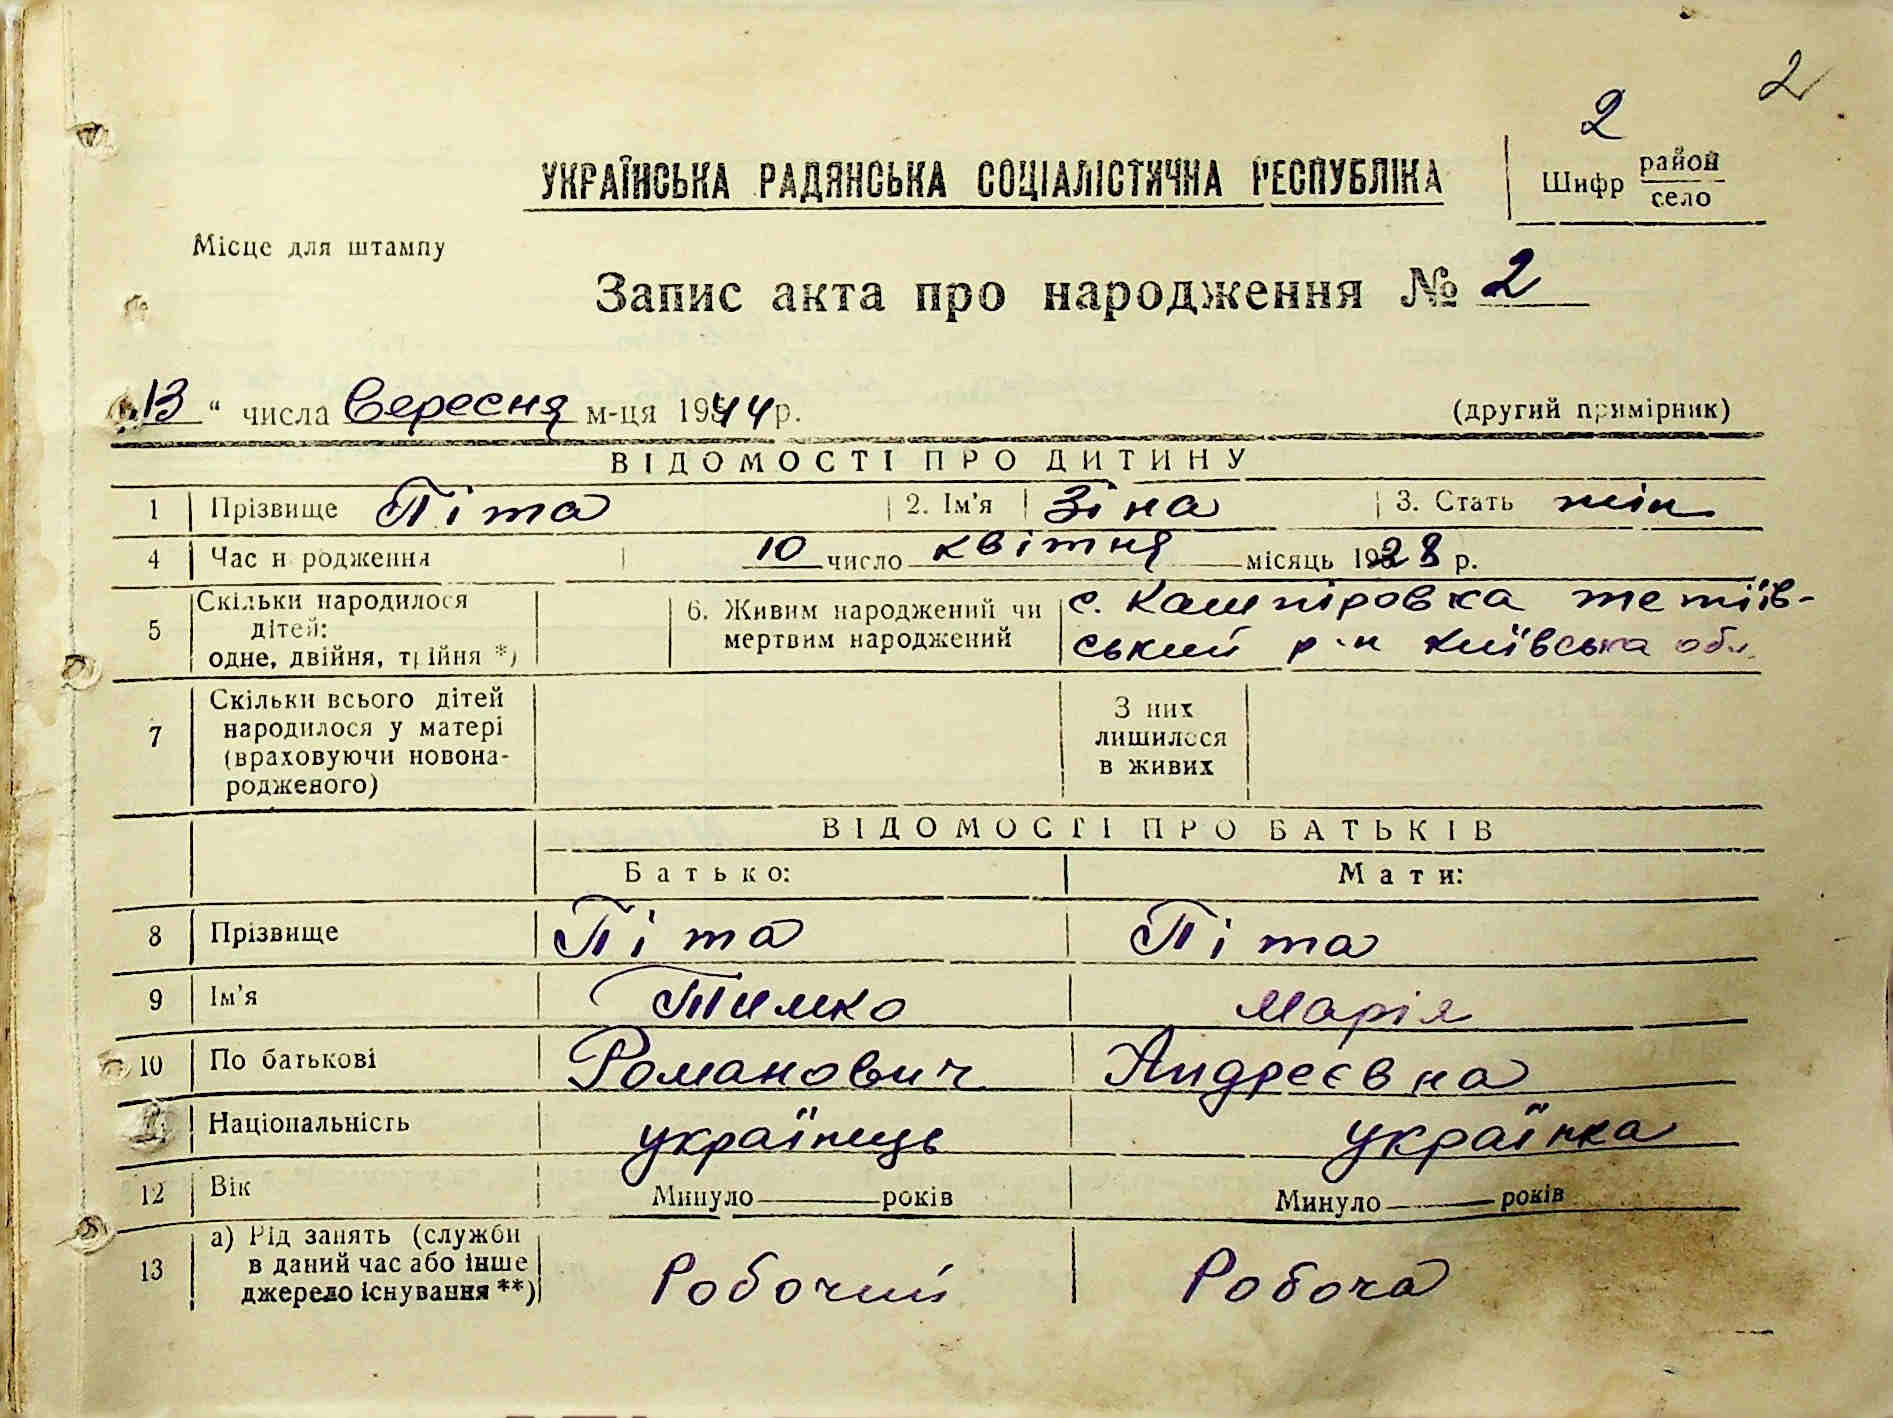 2
2
УКРАЇНСЬКА РАДЯНСЬКА СОЦІАЛІСТИЧНА РЕСПУБЛІКА
Шифр район
село
Місце для штампу
Запис акта про народження № 2
13 " числа Вересня м-ця 1944 р.
(другий примірник)
ВІДОМОСТІ ПРО ДИТИНУ
1 Прізвище Піта 2. Ім'я Зіна 3. Стать жін
4 Час народження 10 число квітня місяць 1928 р.
5 Скільки народилося дітей: одне, двійня, трійня *)
6. Живим народжений чи мертвим народжений
с. Кашпіровка тетіїв-
ський р-н Київська обл.
7 Скільки всього дітей народилося у матері (враховуючи новона-родженого)
З них лишилося в живих
ВІДОМОСТІ ПРО БАТЬКІВ
Батько: Мати:
8 Прізвище Піта Піта
9 Ім'я Тимко Марія
10 По батькові Романович Андреєвна
Національність українець українка
12 Вік Минуло років Минуло років
13 а) Рід занять (служби в даний час або інше джерело існування **) Робочий Робоча